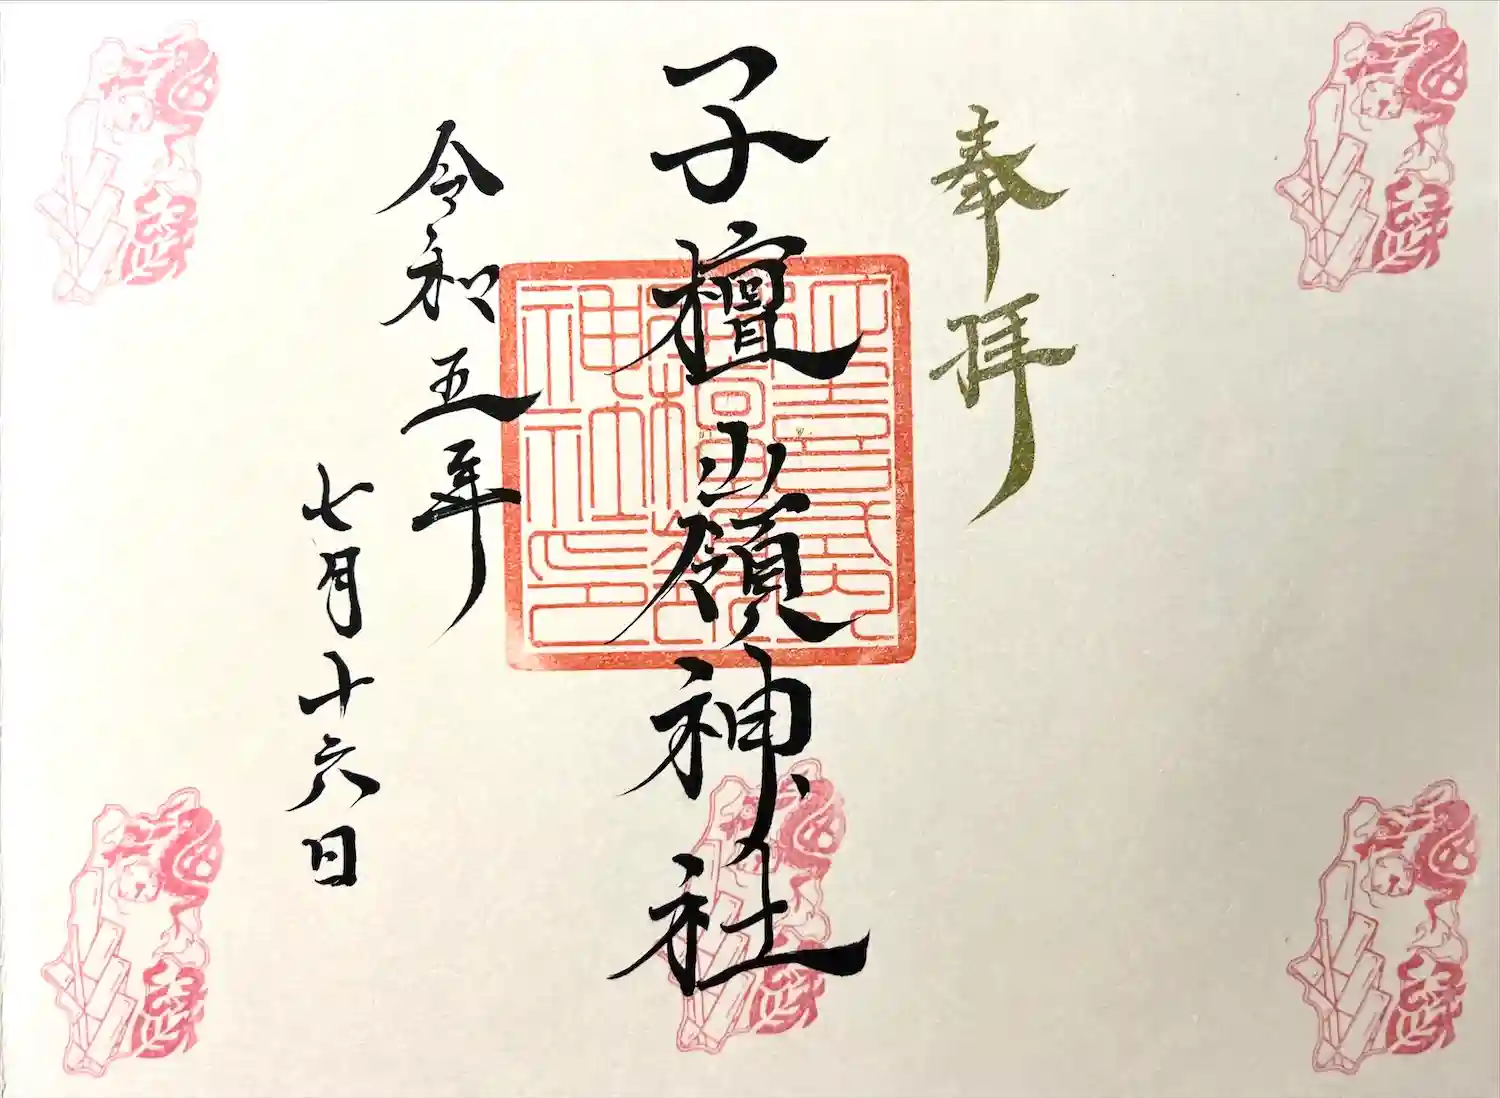 奉拝
子檀嶺神社
令和五年
七月十六日